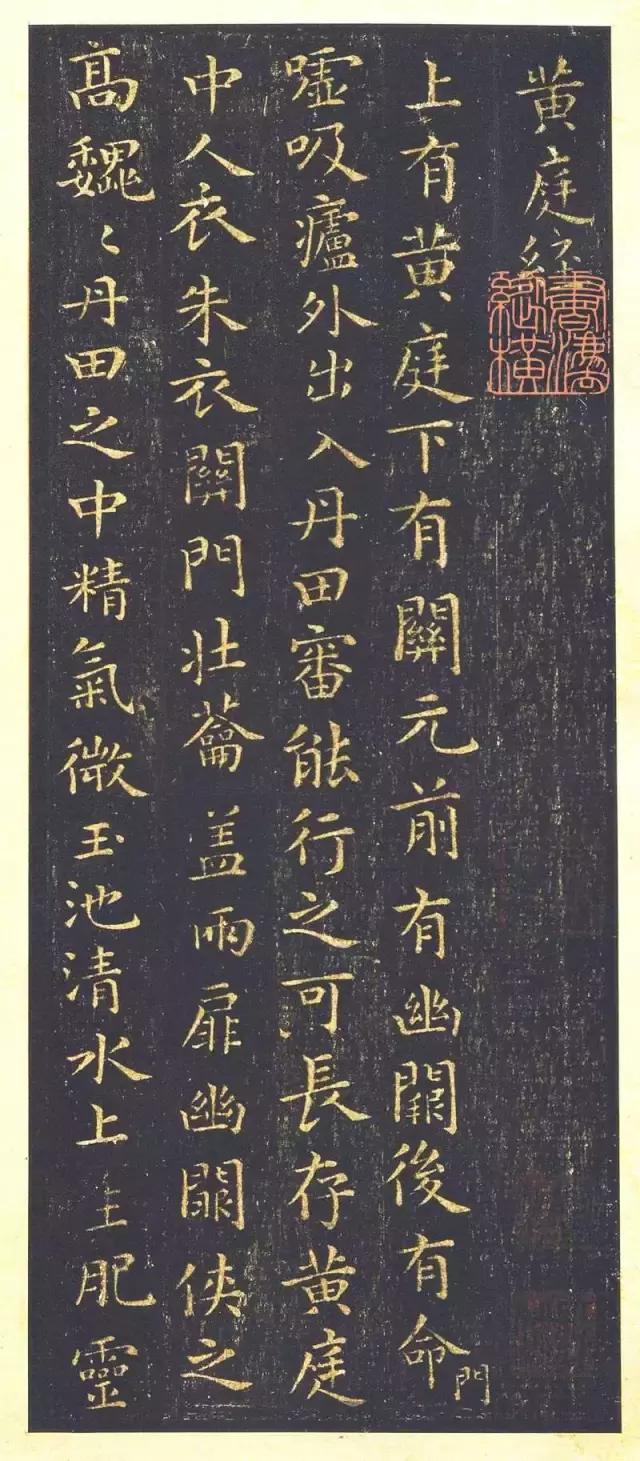 黄庭經
上有黄庭下有關元前有幽闕後有命門
嘘吸廬外出入丹田審能行之可長存黄庭
中人衣朱衣關門壯蘥盖兩扉幽闕侠之
高魏〻丹田之中精氣微玉池清水上生肥靈